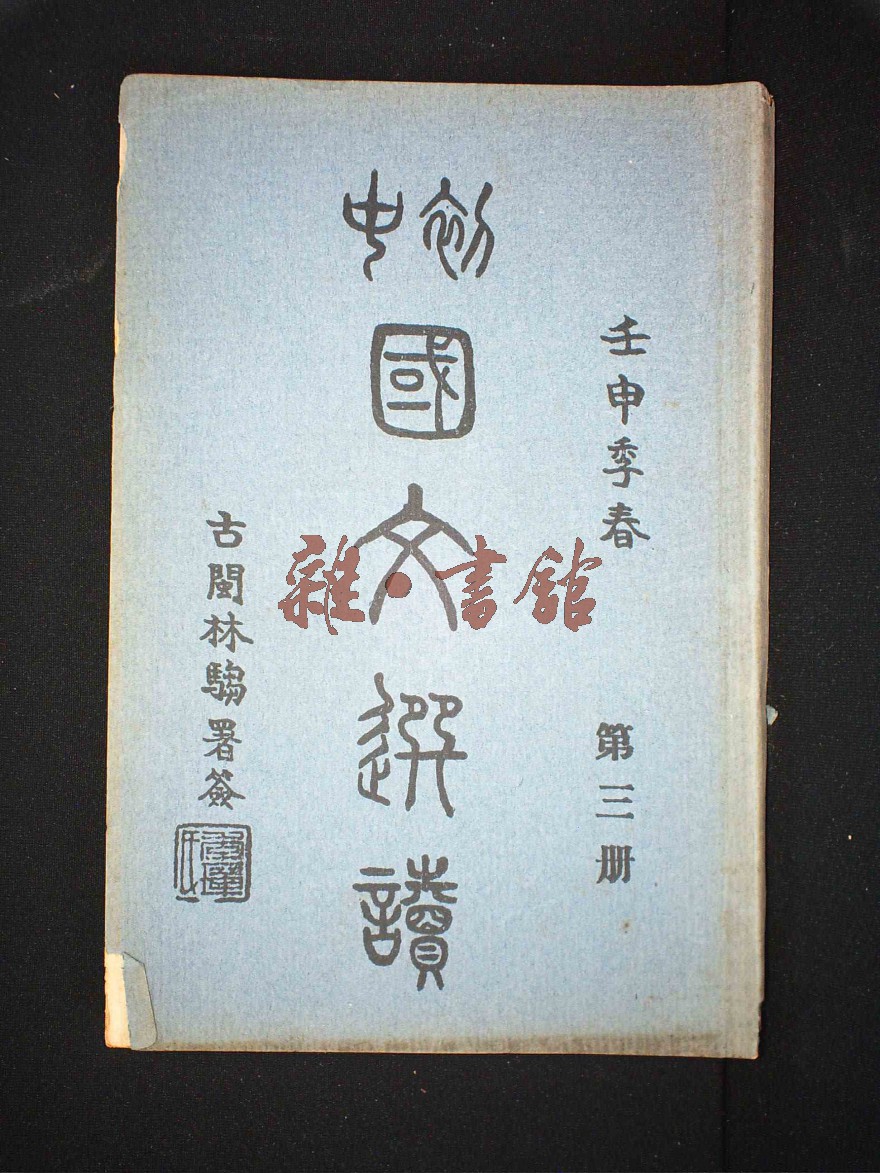 壬申季春
第三册
初中
國文選讀
古閩林騶署簽
雜·書館